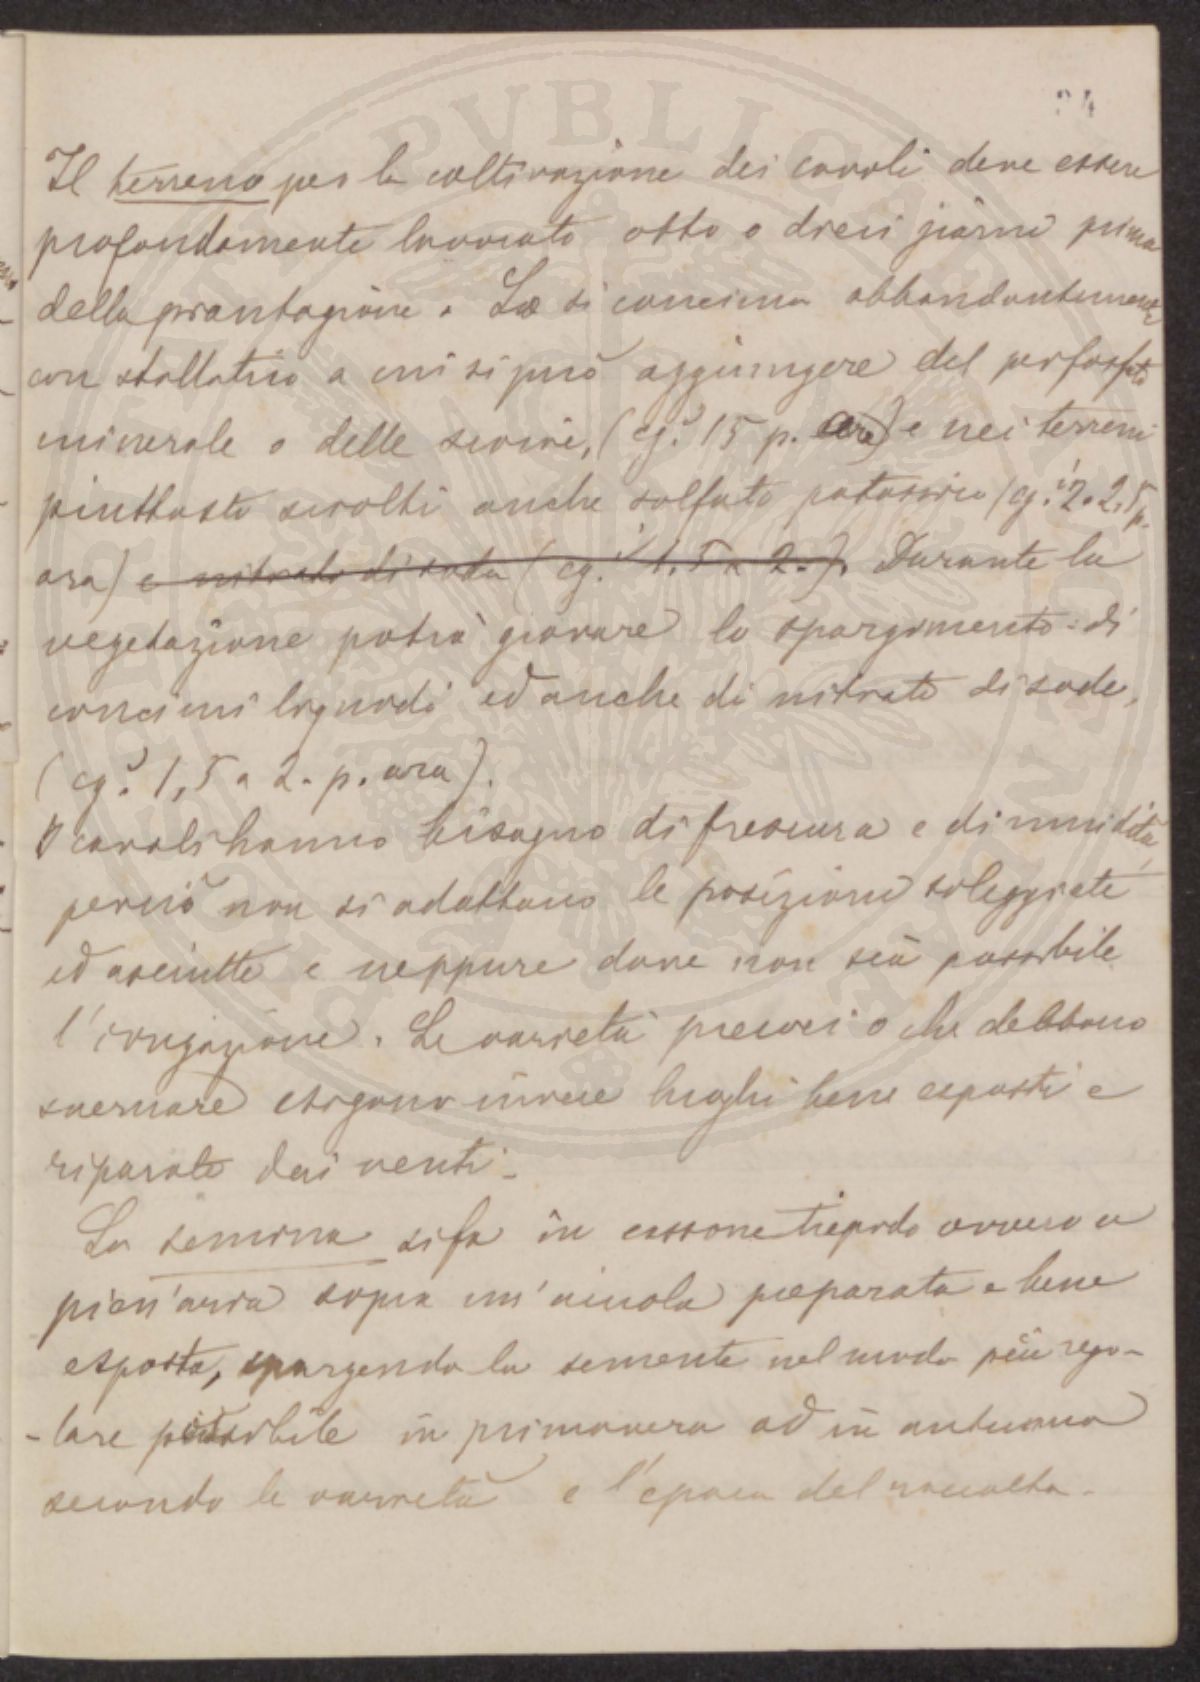 24
Il terreno per la coltivazione dei cavoli deve essere
profondamente lavorato otto o dieci giorni prima
della piantagione. Lo si concima abbondantemente
con stallatico a cui si può aggiungere del perfosfato
minerale o delle scorie, (cg.i 15 p. ara) e nei terreni
piuttosto sciolti anche solfato potassico (cg.i 2 a 2.5 p.
ara) e nitrato di soda (cg.i 1.5 a 2.). Durante la
vegetazione potrà giovare lo spargimento di
concimi liquidi ed anche di nitrato di soda,
(cg.i 1,5 a 2. p. ara).
I cavoli hanno bisogno di frescura e di umidità,
perciò non si adattano le posizioni soleggiate
ed asciutte e neppure dove non sia possibile
l'irrigazione. Le varietà precoci o che debbono
svernare esigono invece luoghi bene esposti e
riparate dai venti.
La semina si fa in cassone tiepido ovvero a
pien'aria sopra un'aiuola preparata e bene
esposta, spargendo la semente nel modo più rego-
-lare possibile in primavera od in autunno
secondo le varietà e l'epoca del raccolta.
PVBLICAE